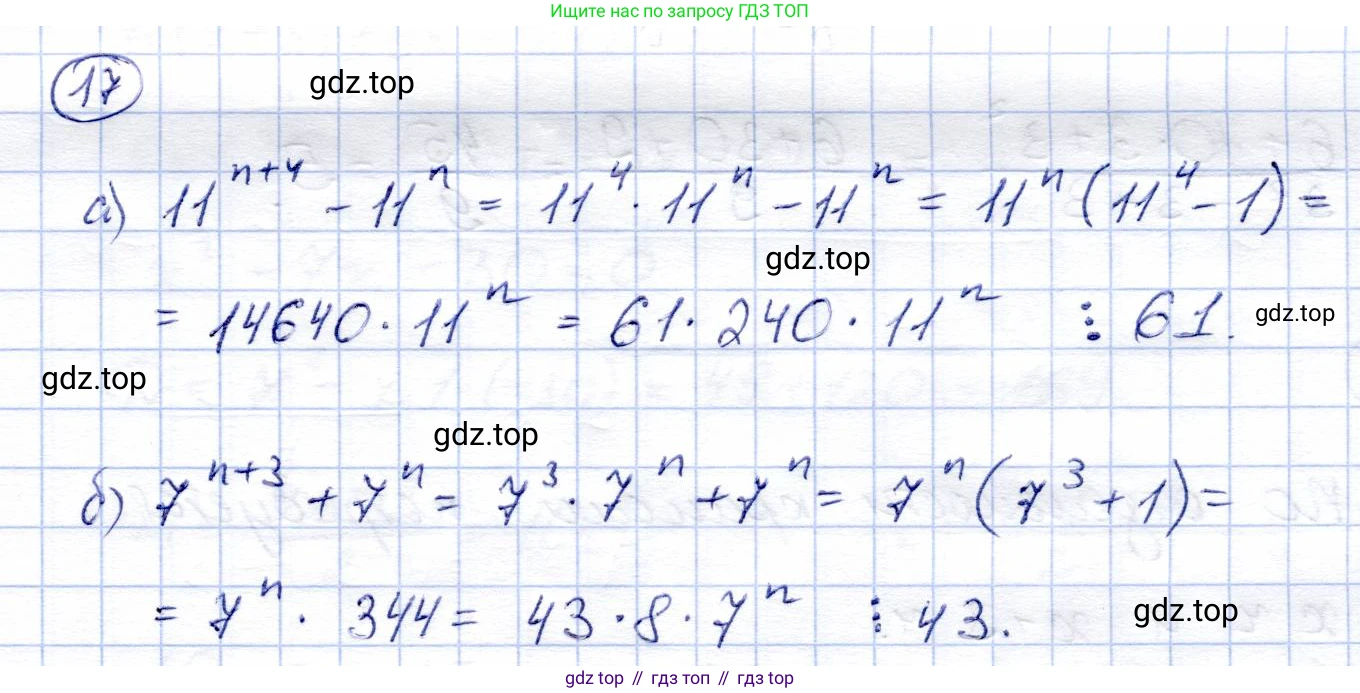 Ищите нас по запросу ГДЗ ТОП
17
gdz.top
а) 11^{n+4} - 11^n = 11^4 · 11^n - 11^n = 11^n (11^4 - 1) =
gdz.top
= 14640 · 11^n = 61 · 240 · 11^n ⋮ 61.
gdz.top
gdz.top
gdz.top
б) 7^{n+3} + 7^n = 7^3 · 7^n + 7^n = 7^n (7^3 + 1) =
= 7^n · 344 = 43 · 8 · 7^n ⋮ 43.
gdz.top
gdz top // гдз топ // гдз top